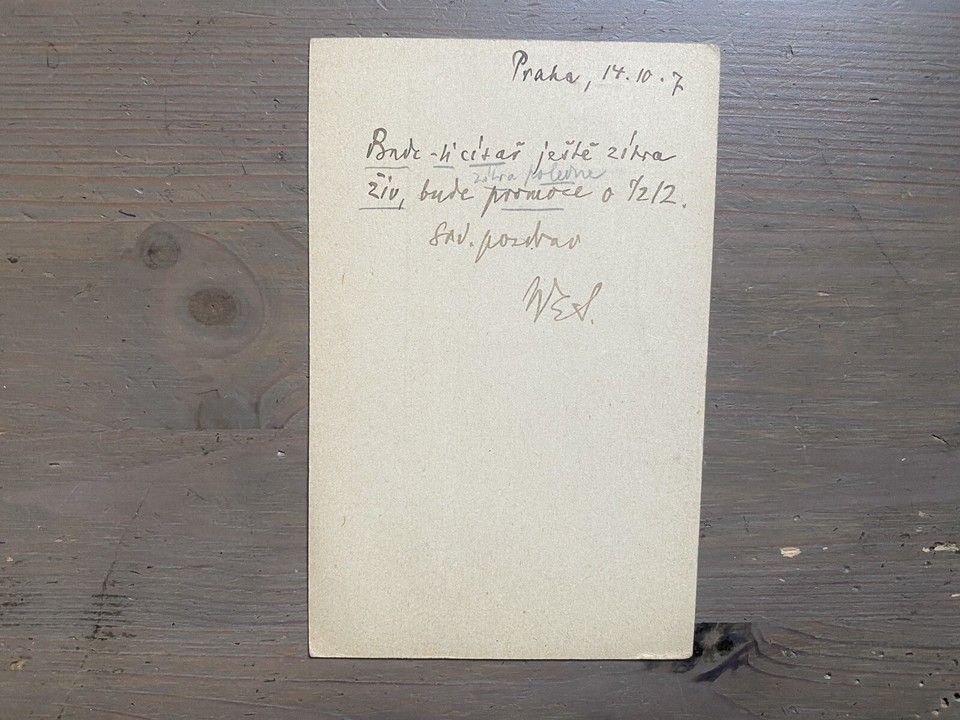 Praha, 14.10.7
Bude-li císař ještě zítra
zítra poledne
živ, bude promoce o 1/2 12.
Srd. pozdrav